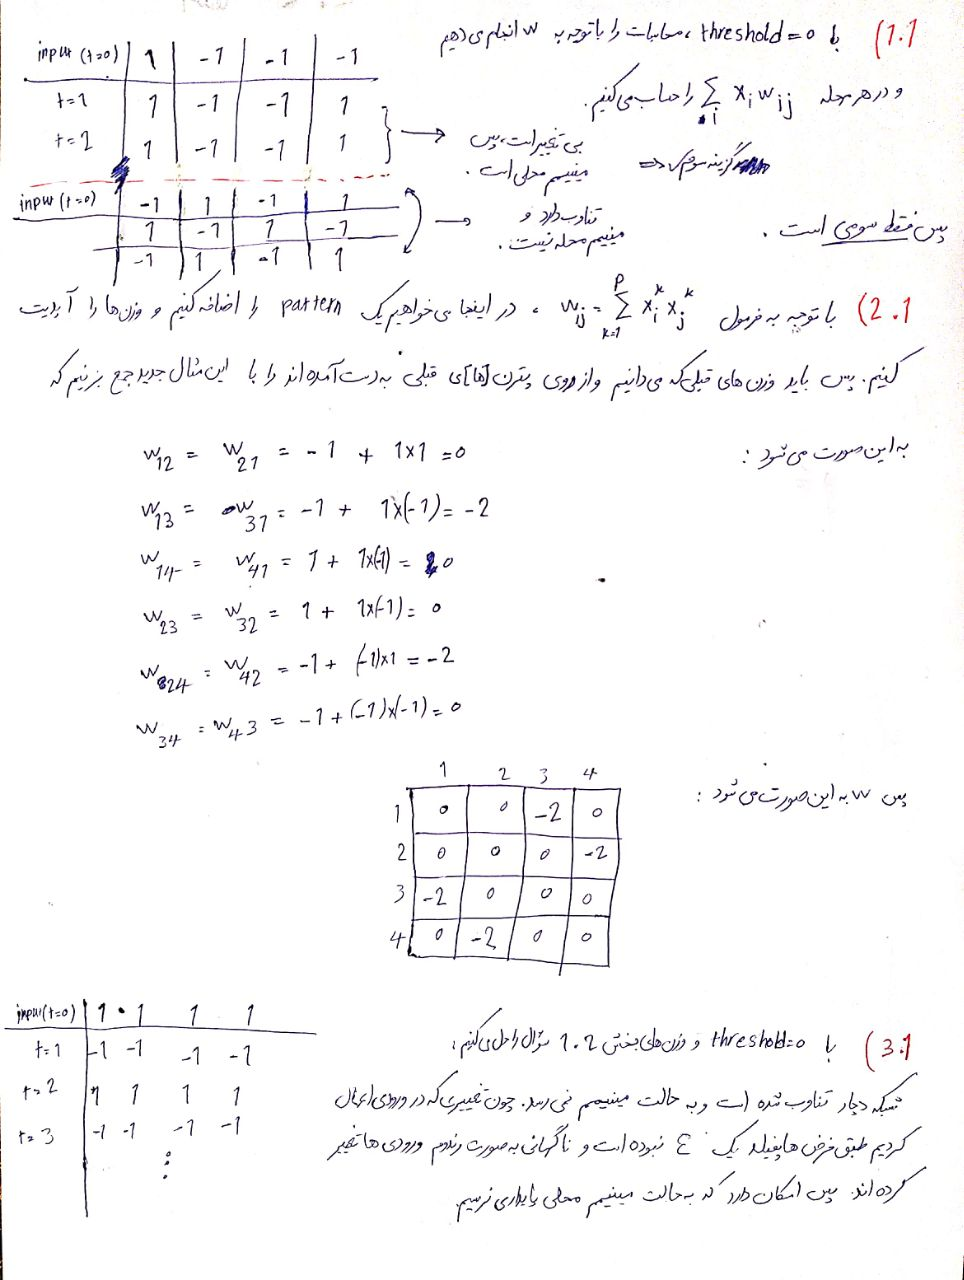 1.1) با threshold=0 ، محاسبات را با توجه به w انجام می دهیم
و در هر مرحله Σ_i x_i w_ij را حساب می کنیم.
input (t=0) | 1 | -1 | -1 | -1
t=1 | 1 | -1 | -1 | 1
t=2 | 1 | -1 | -1 | 1
بی تغییر است، پس
مینیمم محلی است.
=> گزینه سوم
input (t=0) | -1 | 1 | -1 | 1
1 | -1 | 1 | -1
-1 | 1 | -1 | 1
تناوب دارد و
مینیمم محلی نیست.
پس فقط سومی است.
2.1) با توجه به فرمول w_ij = Σ_{k=1}^{P} x_i^k x_j^k ، در اینجا می خواهیم یک pattern را اضافه کنیم و وزن ها را آپدیت
کنیم. پس باید وزن های قبلی که می دانیم و از روی پترن [ها]ی قبلی به دست آمده اند را با این مثال جدید جمع بزنیم که
به این صورت می شود :
w12 = w21 = -1 + 1x1 = 0
w13 = w31 = -1 + 1x(-1) = -2
w14 = w41 = 1 + 1x(-1) = 0
w23 = w32 = 1 + 1x(-1) = 0
w24 = w42 = -1 + (-1)x1 = -2
w34 = w43 = -1 + (-1)x(-1) = 0
پس w به این صورت می شود :
1 2 3 4
1 | 0 | 0 | -2 | 0
2 | 0 | 0 | 0 | -2
3 | -2 | 0 | 0 | 0
4 | 0 | -2 | 0 | 0
3.1) با threshold=0 و وزن های بخش 1.2 سوال را حل می کنیم،
input (t=0) | 1 1 1 1
t=1 | -1 -1 -1 -1
t=2 | 1 1 1 1
t=3 | -1 -1 -1 -1
⋮
شبکه دچار تناوب شده است و به حالت مینیمم نمی رسد. چون تغییری که در ورودی اعمال
کردیم طبق فرض هاپفیلد یک ε نبوده است و ناگهانی به صورت رندوم ورودی ها تغییر
کرده اند. پس امکان دارد که به حالت مینیمم محلی پایداری نرسیم.